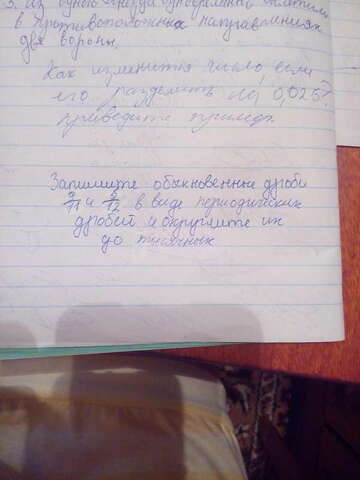 3. Из одного гнезда одновременно вылетели
в противоположных направлениях
две вороны.
Как изменится число, если
его разделить на 0,025?
приведите пример.
Запишите обыкновенные дроби
/11 и /12 в виде периодических
дробей и округлите их
до тысячных